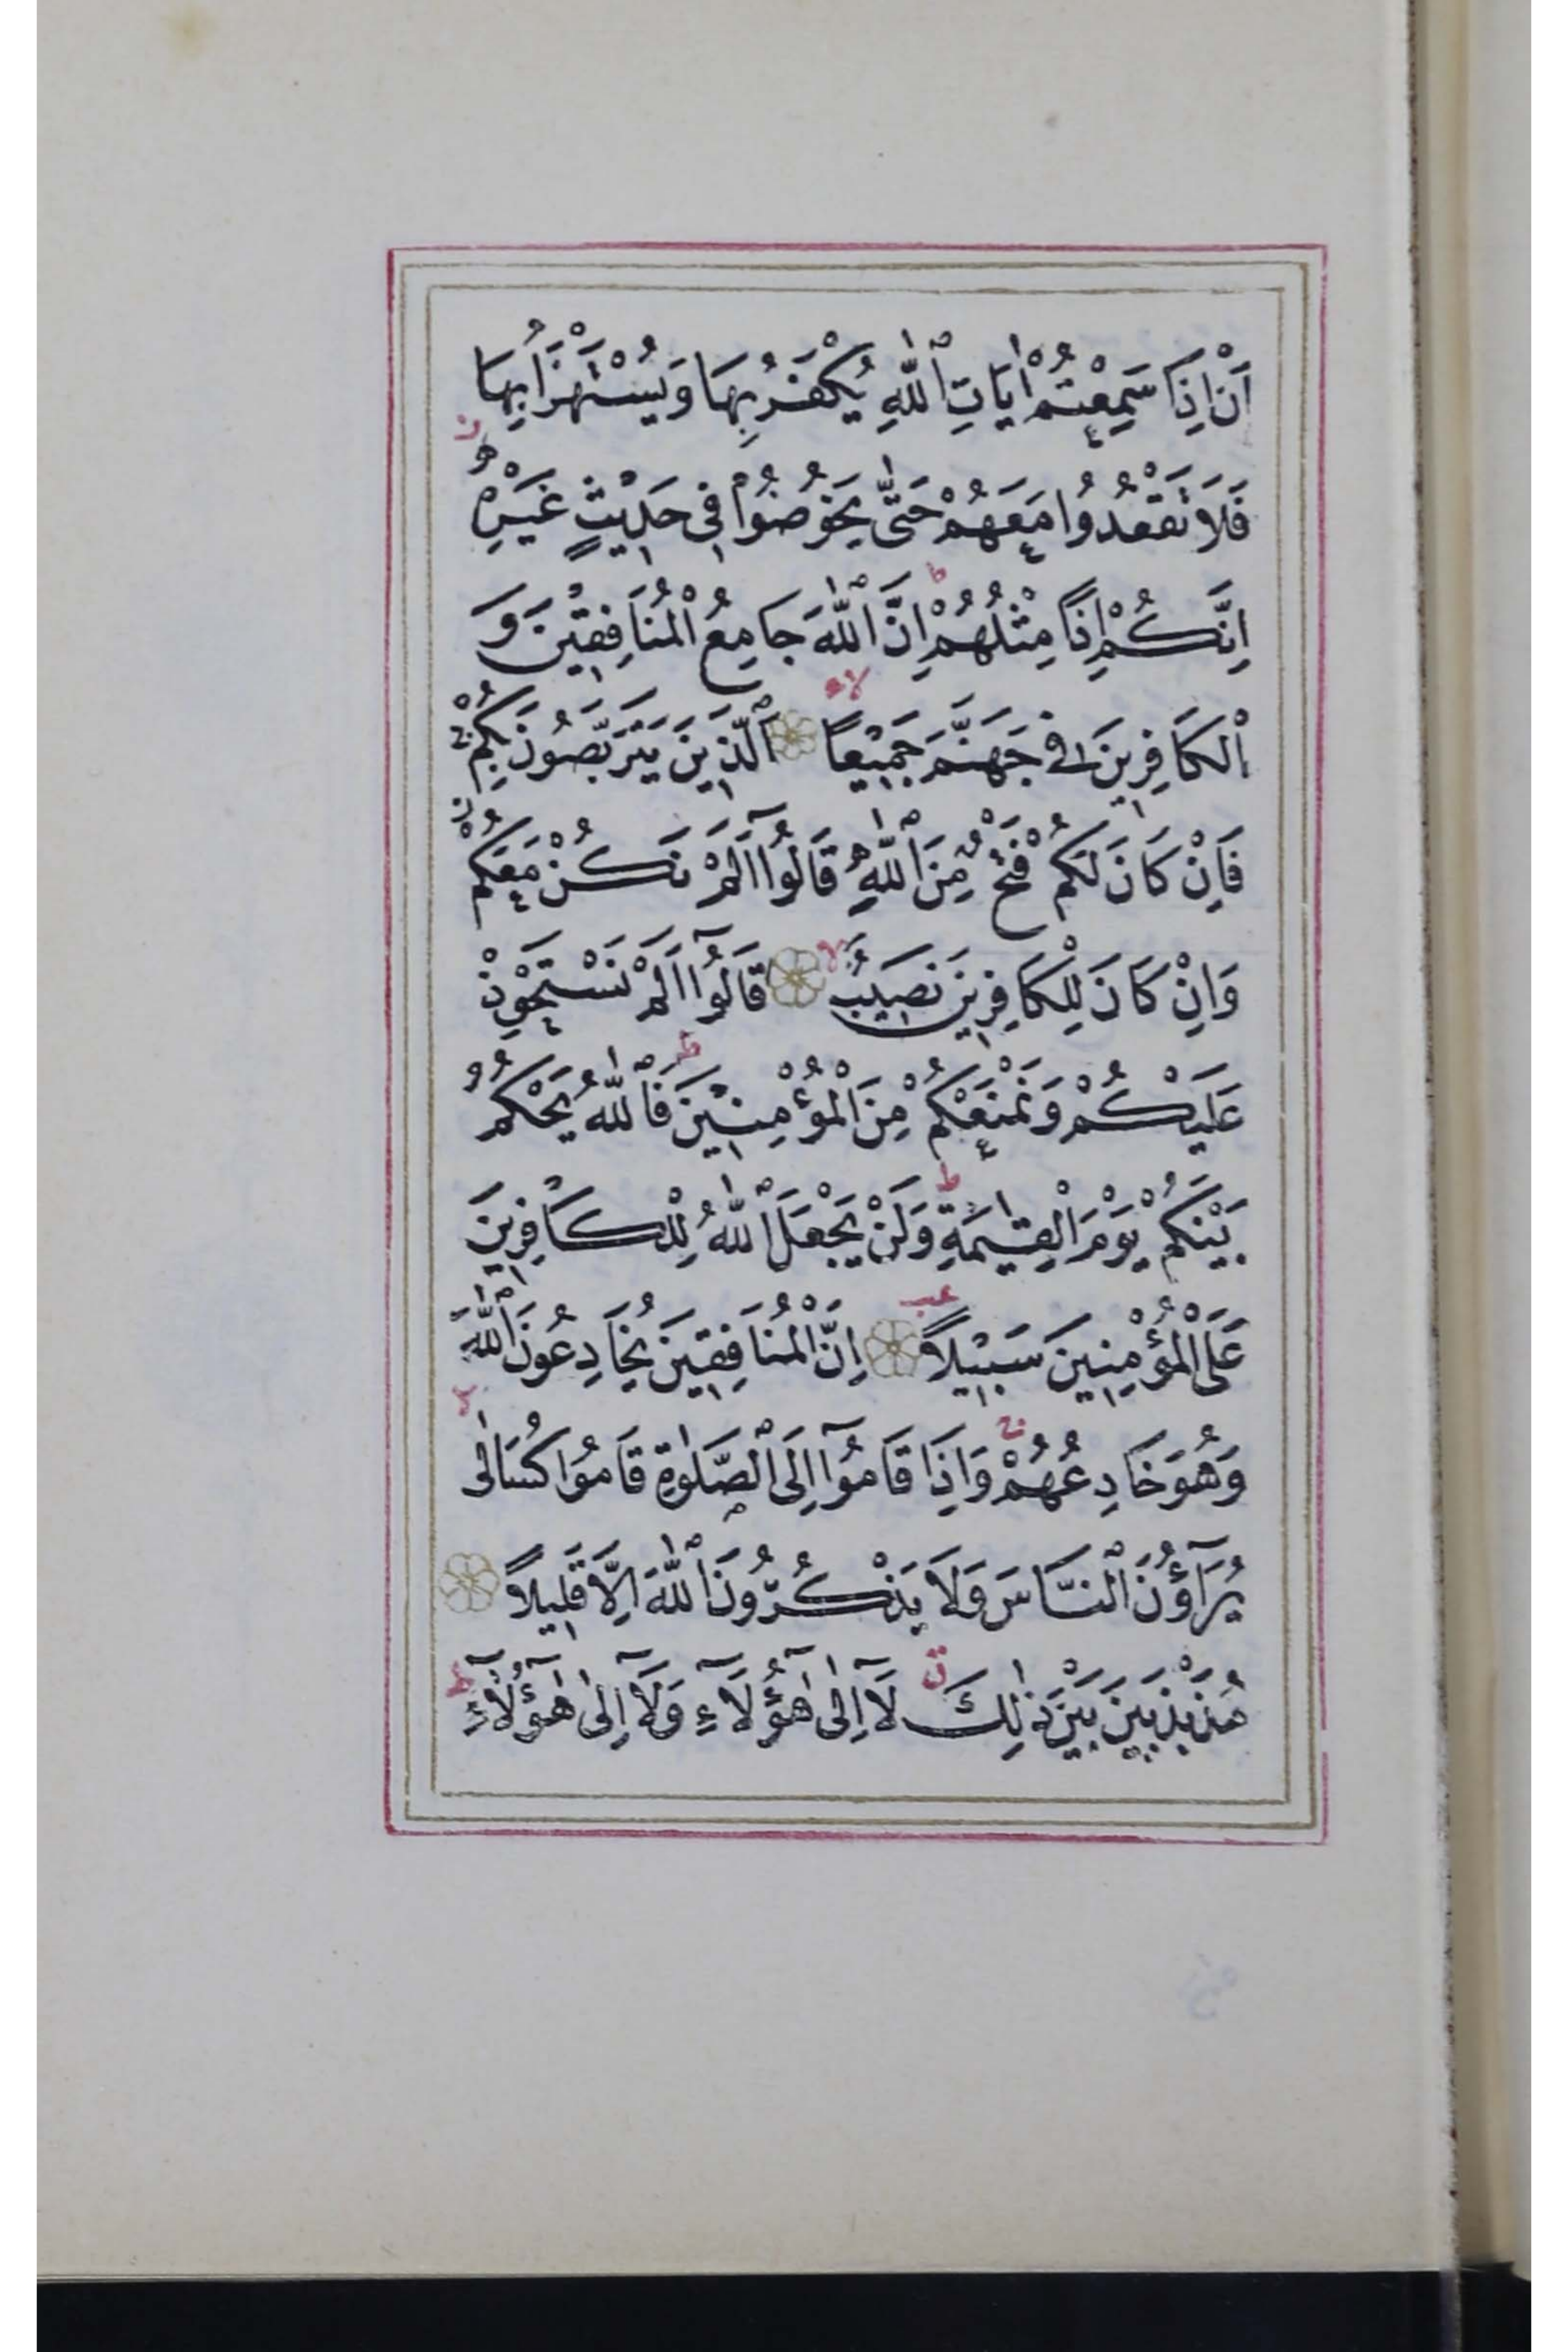 اَنْ اِذَا سَمِعْتُمْ اٰيَاتِ ٱللّٰهِ يُكْفَرُ بِهَا وَيُسْتَهْزَاُ بِهَا
فَلَا تَقْعُدُوا مَعَهُمْ حَتّٰى يَخُوضُوْا فِي حَدِيْثٍ غَيْرِهِ ز
اِنَّكُمْ اِذًا مِثْلُهُمْ ط اِنَّ ٱللّٰهَ جَامِعُ الْمُنَافِقِيْنَ وَ
اْلكَافِرِينَ فِي جَهَنَّمَ جَمِيْعًا لا ٱلَّذِيْنَ يَتَرَبَّصُونَ بِكُمْ ج
فَاِنْ كَانَ لَكُمْ فَتْحٌ مِنَ ٱللّٰهِ قَالُوْٓا اَلَمْ نَكُنْ مَعَكُمْ ز
وَاِنْ كَانَ لِلْكَافِرِيْنَ نَصِيْبٌ لا قَالُوْٓا اَلَمْ نَسْتَحْوِذْ
عَلَيْكُمْ وَنَمْنَعْكُمْ مِنَ الْمُؤْمِنِيْنَ ط فَٱللّٰهُ يَحْكُمُ
بَيْنَكُمْ يَوْمَ الْقِيٰمَةِ ط وَلَنْ يَجْعَلَ ٱللّٰهُ لِلْكَافِرِينَ
عَلَى الْمُؤْمِنِينَ سَبِيْلًا عب اِنَّ الْمُنَافِقِيْنَ يُخَادِعُونَ ٱللّٰهَ
وَهُوَ خَادِعُهُمْ ج وَاِذَا قَامُوْٓا اِلَى ٱلصَّلٰوةِ قَامُوا كُسَالٰى
يُرَآؤُنَ ٱلنَّاسَ وَلَا يَذْكُرُونَ ٱللّٰهَ اِلَّا قَلِيْلًا
مُذَبْذَبِيْنَ بَيْنَ ذٰلِكَ ق لَآ اِلٰى هٰٓؤُلَآءِ وَلَآ اِلٰى هٰٓؤُلَآءِ ط